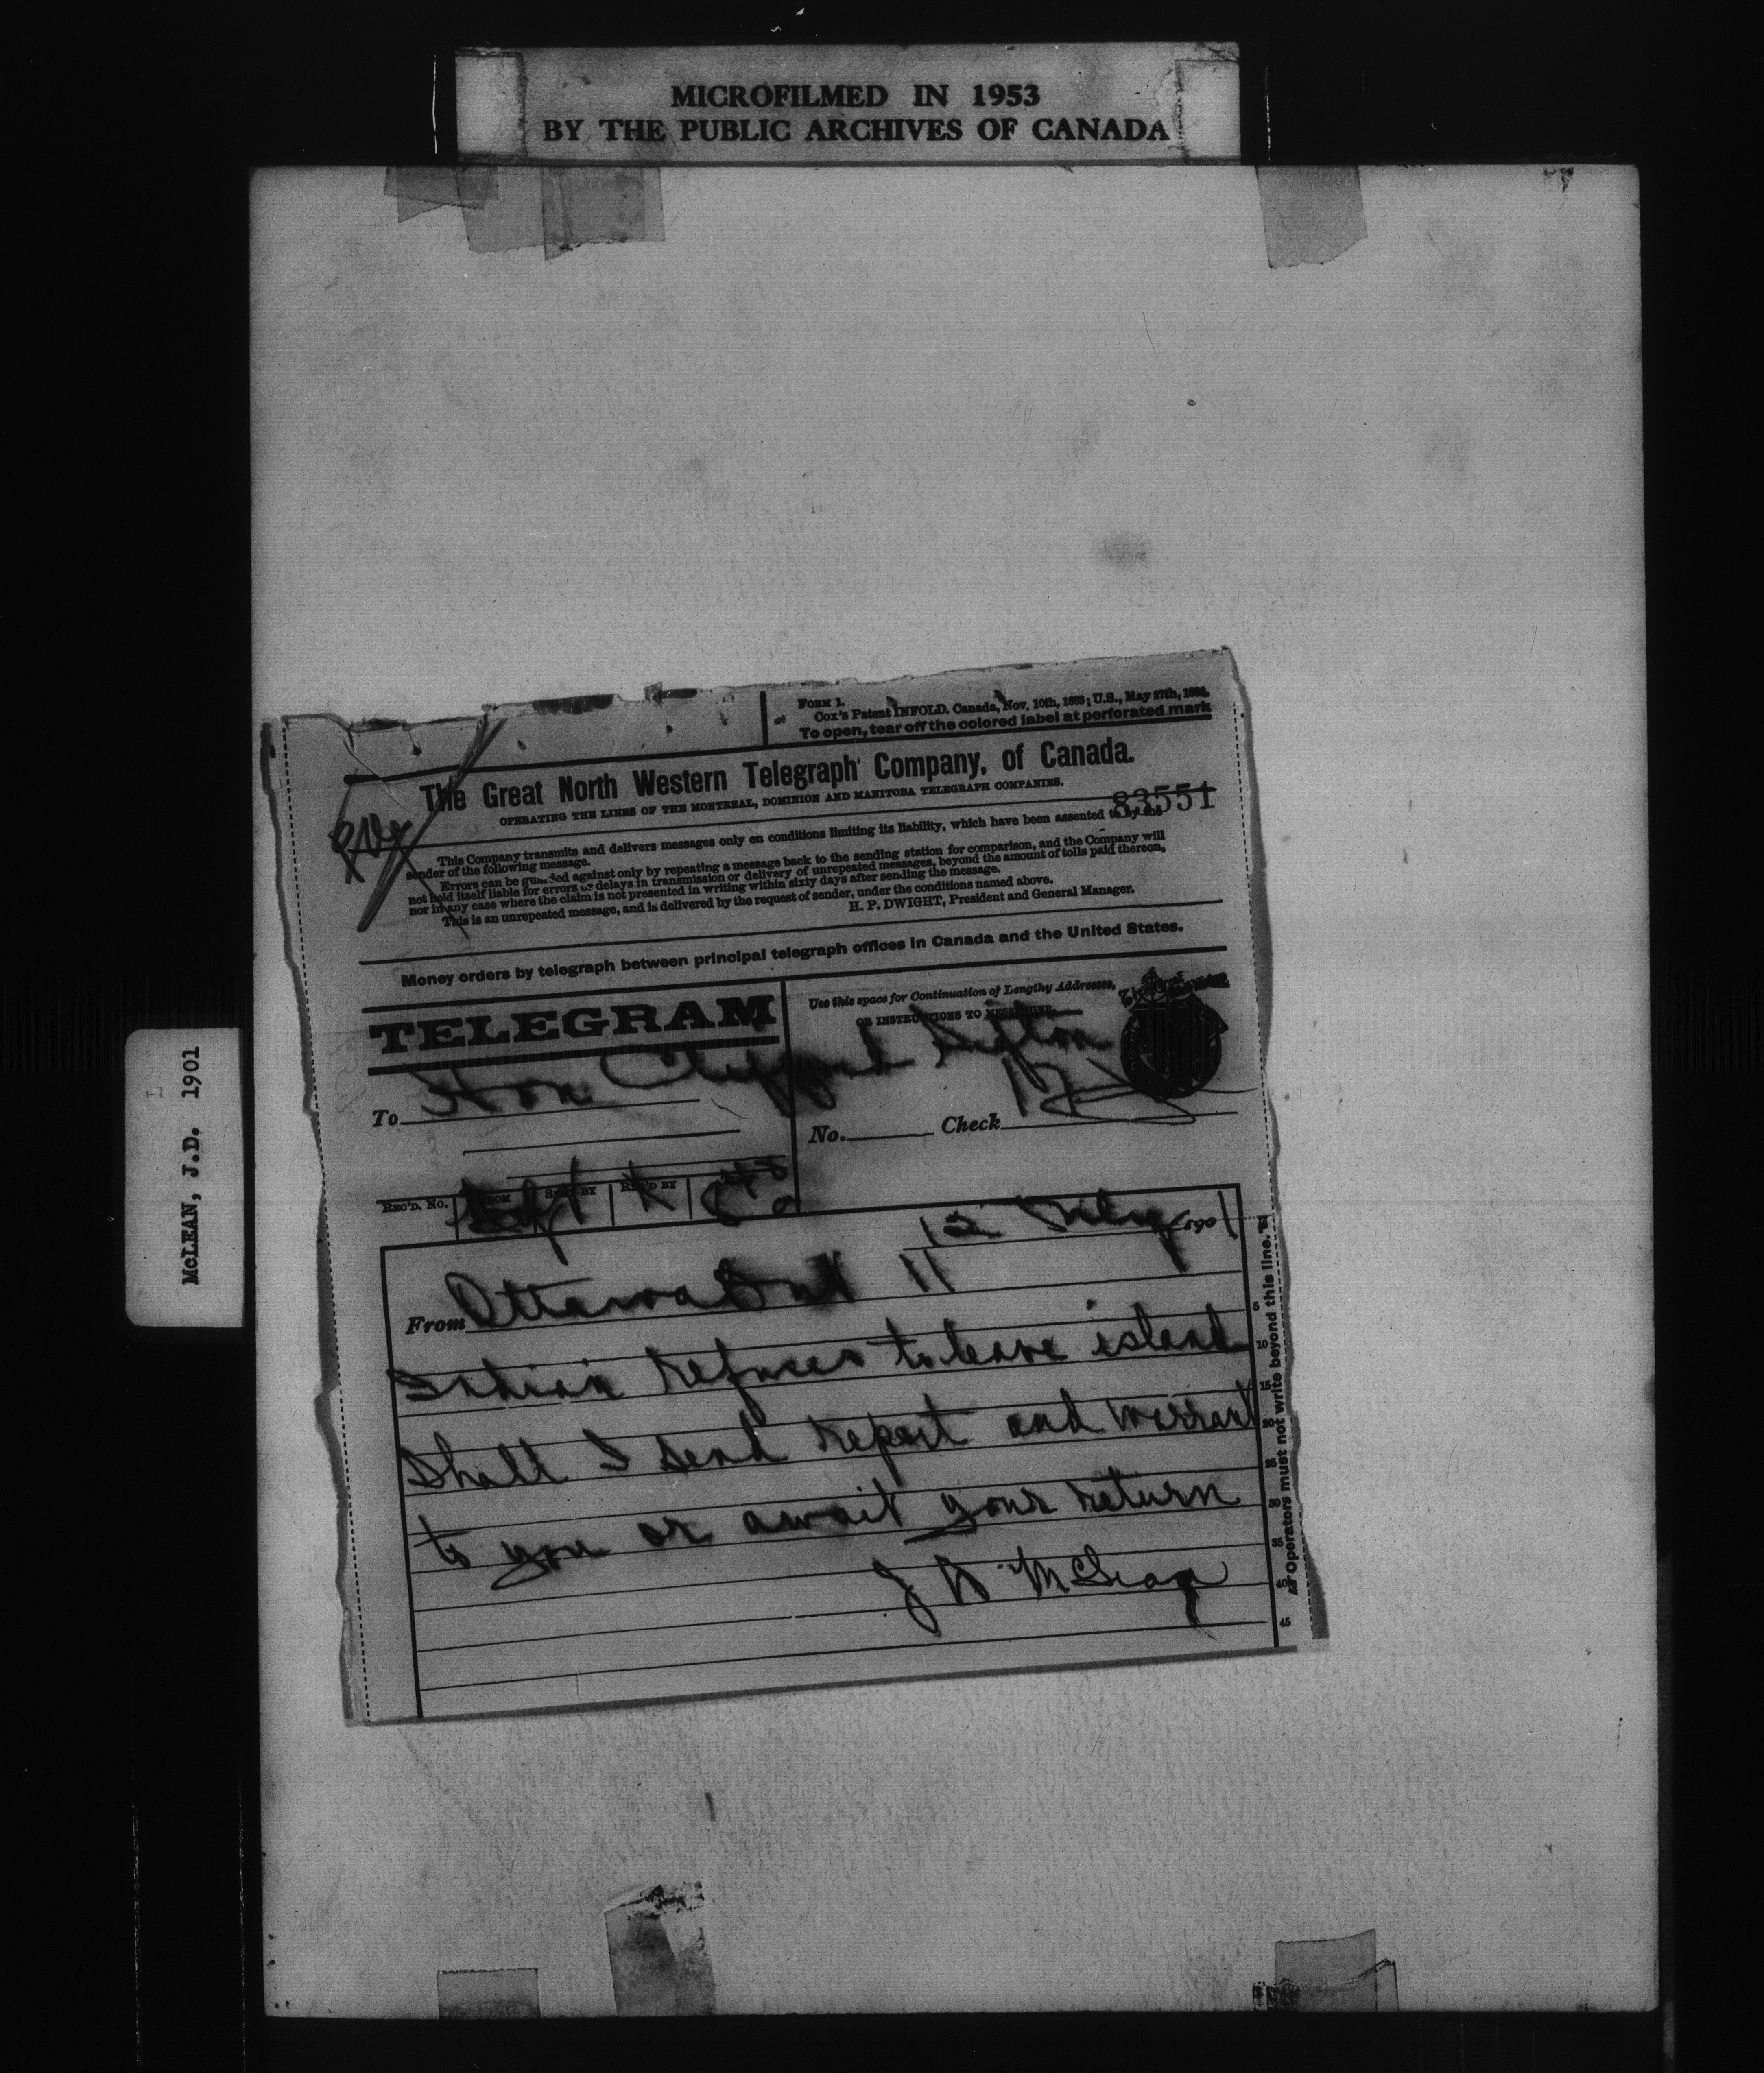 MICROFILMED IN 1953
BY THE PUBLIC ARCHIVES OF CANADA
McLEAN, J.D. 1901
FORM 1.
Cox's Patent INFOLD. Canada, Nov. 10th, 1883; U.S., May 27th, 1884.
To open, tear off the colored label at perforated mark
The Great North Western Telegraph Company, of Canada.
OPERATING THE LINES OF THE MONTREAL, DOMINION AND MANITOBA TELEGRAPH COMPANIES.
83551
This Company transmits and delivers messages only on conditions limiting its liability, which have been assented to by the
sender of the following message.
Errors can be guarded against only by repeating a message back to the sending station for comparison, and the Company will
not hold itself liable for errors or delays in transmission or delivery of unrepeated messages, beyond the amount of tolls paid thereon,
nor in any case where the claim is not presented in writing within sixty days after sending the message.
This is an unrepeated message, and is delivered by the request of sender, under the conditions named above.
H. P. DWIGHT, President and General Manager.
Money orders by telegraph between principal telegraph offices in Canada and the United States.
TELEGRAM
Use this space for Continuation of Lengthy Addresses,
OR INSTRUCTIONS TO MESSENGER.
To Hon Clifford Sifton
No. Check 17
REC'D. No. FROM SENT BY REC'D BY
12 July 1901
From Ottawa Ont 11
Indian refuses to leave island
Shall I send report and warrant
to you or await your return
J D McLean
5
10
15
20
25
30
35
40
45
Operators must not write beyond this line.